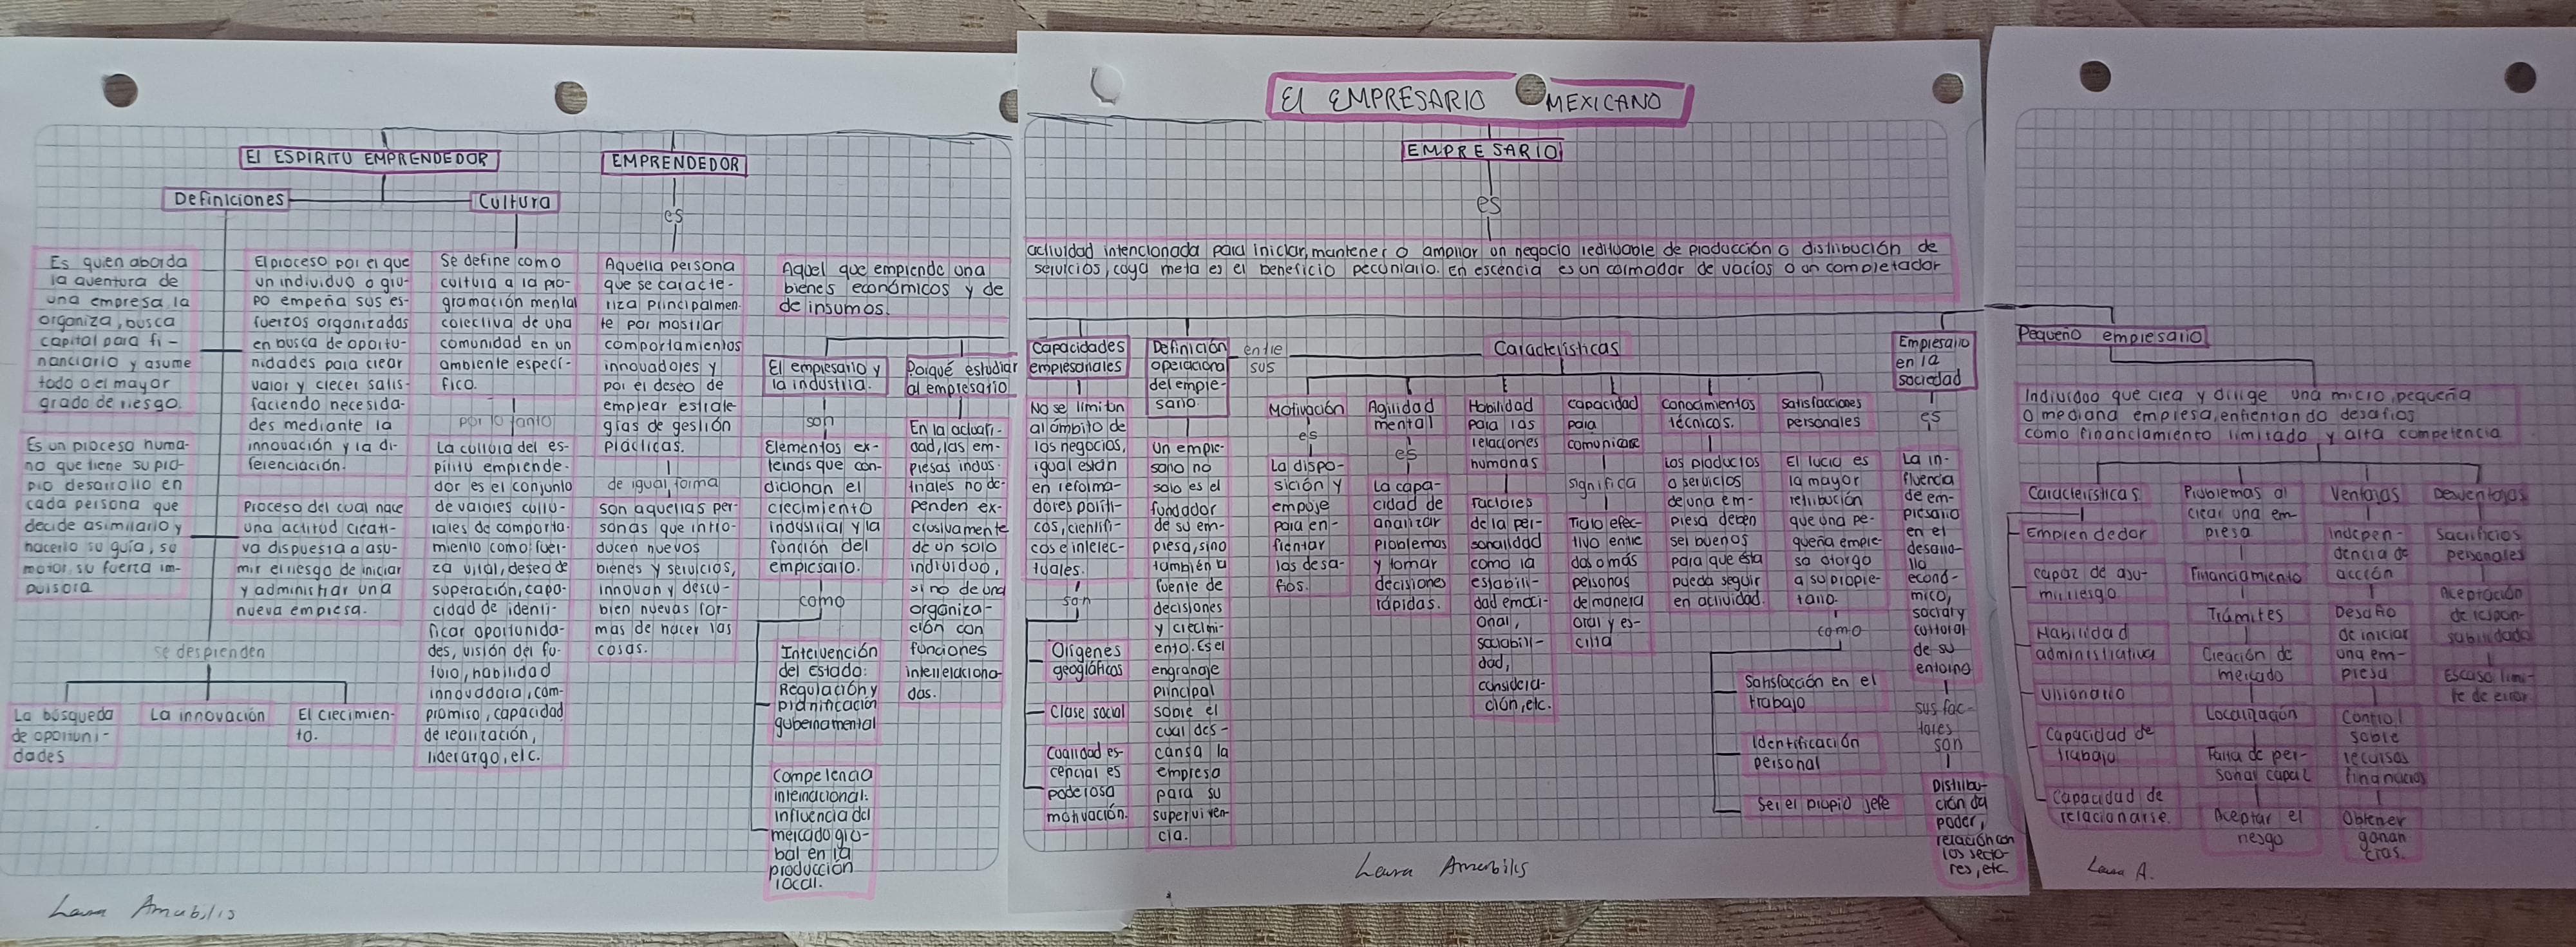 El EMPRESARIO MEXICANO
El ESPIRITU EMPRENDEDOR
Definiciones
Cultura
Es quien aborda
la aventura de
una empresa, la
organiza, busca
capital para fi-
nanciarlo y asume
todo o el mayor
grado de riesgo.
Es un proceso huma-
no que tiene su pro-
pio desarrollo en
cada persona que
decide asimilarlo y
hacerlo su guía, su
motor, su fuerza im-
pulsora
El proceso por el que
un individuo o gru-
po empeña sus es-
fuerzos organizados
en busca de oportu-
nidades para crear
valor y crecer satis-
faciendo necesida-
des mediante la
innovación y la di-
ferenciación.
Proceso del cual nace
una actitud creati-
va dispuesta a asu-
mir el riesgo de iniciar
y administrar una
nueva empresa.
se desprenden
La búsqueda
de oportuni-
dades
La innovación
El crecimien-
to.
Se define como
cultura a la pro-
gramación mental
colectiva de una
comunidad en un
ambiente especí-
fico.
por lo tanto
La cultura del es-
píritu emprende-
dor es el conjunto
de valores cultu-
rales de comporta-
miento como: fuer-
za vital, deseo de
superación, capa-
cidad de identi-
ficar oportunida-
des, visión del fu-
turo, habilidad
innovadora, com-
promiso, capacidad
de realización,
liderazgo, etc.
EMPRENDEDOR
es
Aquella persona
que se caracte-
riza principalmen-
te por mostrar
comportamientos
innovadores y
por el deseo de
emplear estrate-
gias de gestión
prácticas.
de igual forma
son aquellas per-
sonas que intro-
ducen nuevos
bienes y servicios,
innovan y descu-
bren nuevas for-
mas de hacer las
cosas.
Aquel que emplende una
bienes económicos y de
de insumos.
El empresario y
la industria.
son
Elementos ex-
ternos que con-
dicionan el
crecimiento
industrial y la
función del
empresario.
como
Intervención
del Estado:
Regulación y
planificación
gubernamental
Competencia
internacional:
influencia del
mercado glo-
bal en la
producción
local.
Porqué estudiar
al empresario
En la actuali-
dad, las em-
presas indus-
triales no de-
penden ex-
clusivamente
de un solo
individuo,
sino de una
organiza-
ción con
funciones
interrelaciona-
das.
Laura Amabilis
EMPRESARIO
es
actividad intencionada para iniciar, mantener o ampliar un negocio redituable de producción o distribución de
servicios, cuya meta es el beneficio pecuniario. En escencia es un colmador de vacios o un completador
Capacidades
empresariales
No se limitan
al ámbito de
los negocios,
igual están
en reforma-
dores políti-
cos, científi-
cos e intelec-
tuales.
son
Orígenes
geográficos
Clase social
Cualidad es-
cencial es
poderosa
motivación.
Definición
operacional
del empre-
sario.
Un empre-
sario no
solo es el
fundador
de su em-
presa, sino
también la
fuente de
decisiones
y crecimi-
ento. Es el
engranaje
principal
sobre el
cual des-
cansa la
empresa
para su
superviven-
cia.
entre
sus
Características
Motivación
es
La dispo-
sición y
empuje
para en-
frentar
los desa-
fíos.
Agilidad
mental
es
La capa-
cidad de
analizar
problemas
y tomar
decisiones
rápidas.
Habilidad
para las
relaciones
humanas
Factores
de la per-
sonalidad
como la
estabili-
dad emoci-
onal,
sociabili-
dad,
considera-
ción, etc.
capacidad
para
comunicarse
significa
Trato efec-
tivo entre
dos o más
personas
de manera
oral y es-
crita
Conocimientos
técnicos.
Los productos
o servicios
de una em-
presa deben
ser buenos
para que ésta
pueda seguir
en actividad.
Satisfacciones
personales
El lucro es
la mayor
retribución
que una pe-
queña empre-
sa otorga
a su propie-
tario.
como
Satisfacción en el
trabajo
Identificación
personal
Ser el propio jefe
Empresario
en la
sociedad
es
La in-
fluencia
de em-
presario
en el
desarro-
llo
econó-
mico,
social y
cultural
de su
entorno
sus fac-
tores
son
Distribu-
ción del
poder,
relación con
los secto-
res, etc
Laura Amabilis
Pequeño empresario
Individuo que crea y dirige una micro, pequeña
o mediana empresa, enfrentando desafíos
como financiamiento limitado y alta competencia
Características
Emprendedor
capaz de asu-
mir riesgo
Habilidad
administrativa
Visionario
Capacidad de
trabajo
Capacidad de
relacionarse.
Problemas al
crear una em-
presa
Financiamiento
Trámites
Creación de
mercado
Localización
Falta de per-
sonal capaz
Aceptar el
riesgo
Ventajas
Indepen-
dencia de
acción
Desafío
de iniciar
una em-
presa
Control
sobre
recursos
financieros
Obtener
ganan
cias.
Desventajas
Sacrificios
personales
Aceptación
de respon-
sabilidad
Escaso lími-
te de error
Laura A.